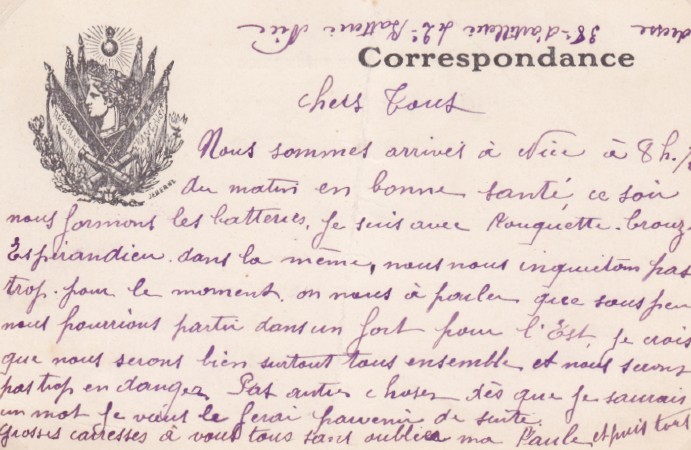 adresse 38e d'artillerie de 2e Batterie Nice
Correspondance
chers Tous
Nous sommes arrivés à Nice à 8 h. 1/2
du matin en bonne santé, ce soir
nous formons les batteries, je suis avec Rouquette. Crouz
Espérandieu. dans la même, nous nous inquietons pas
trop. pour le moment. on nous à parler que sous peu
nous pourrions partir dans un fort pour l'Est, je crois
que nous serons bien surtout tous ensemble et nous serons
pas trop en danger. Pas autre choses dès que je saurais
un mot je vous le ferai parvenir de suite.
Grosses caresses à vous tous sans oublier ma Paule et puis tous